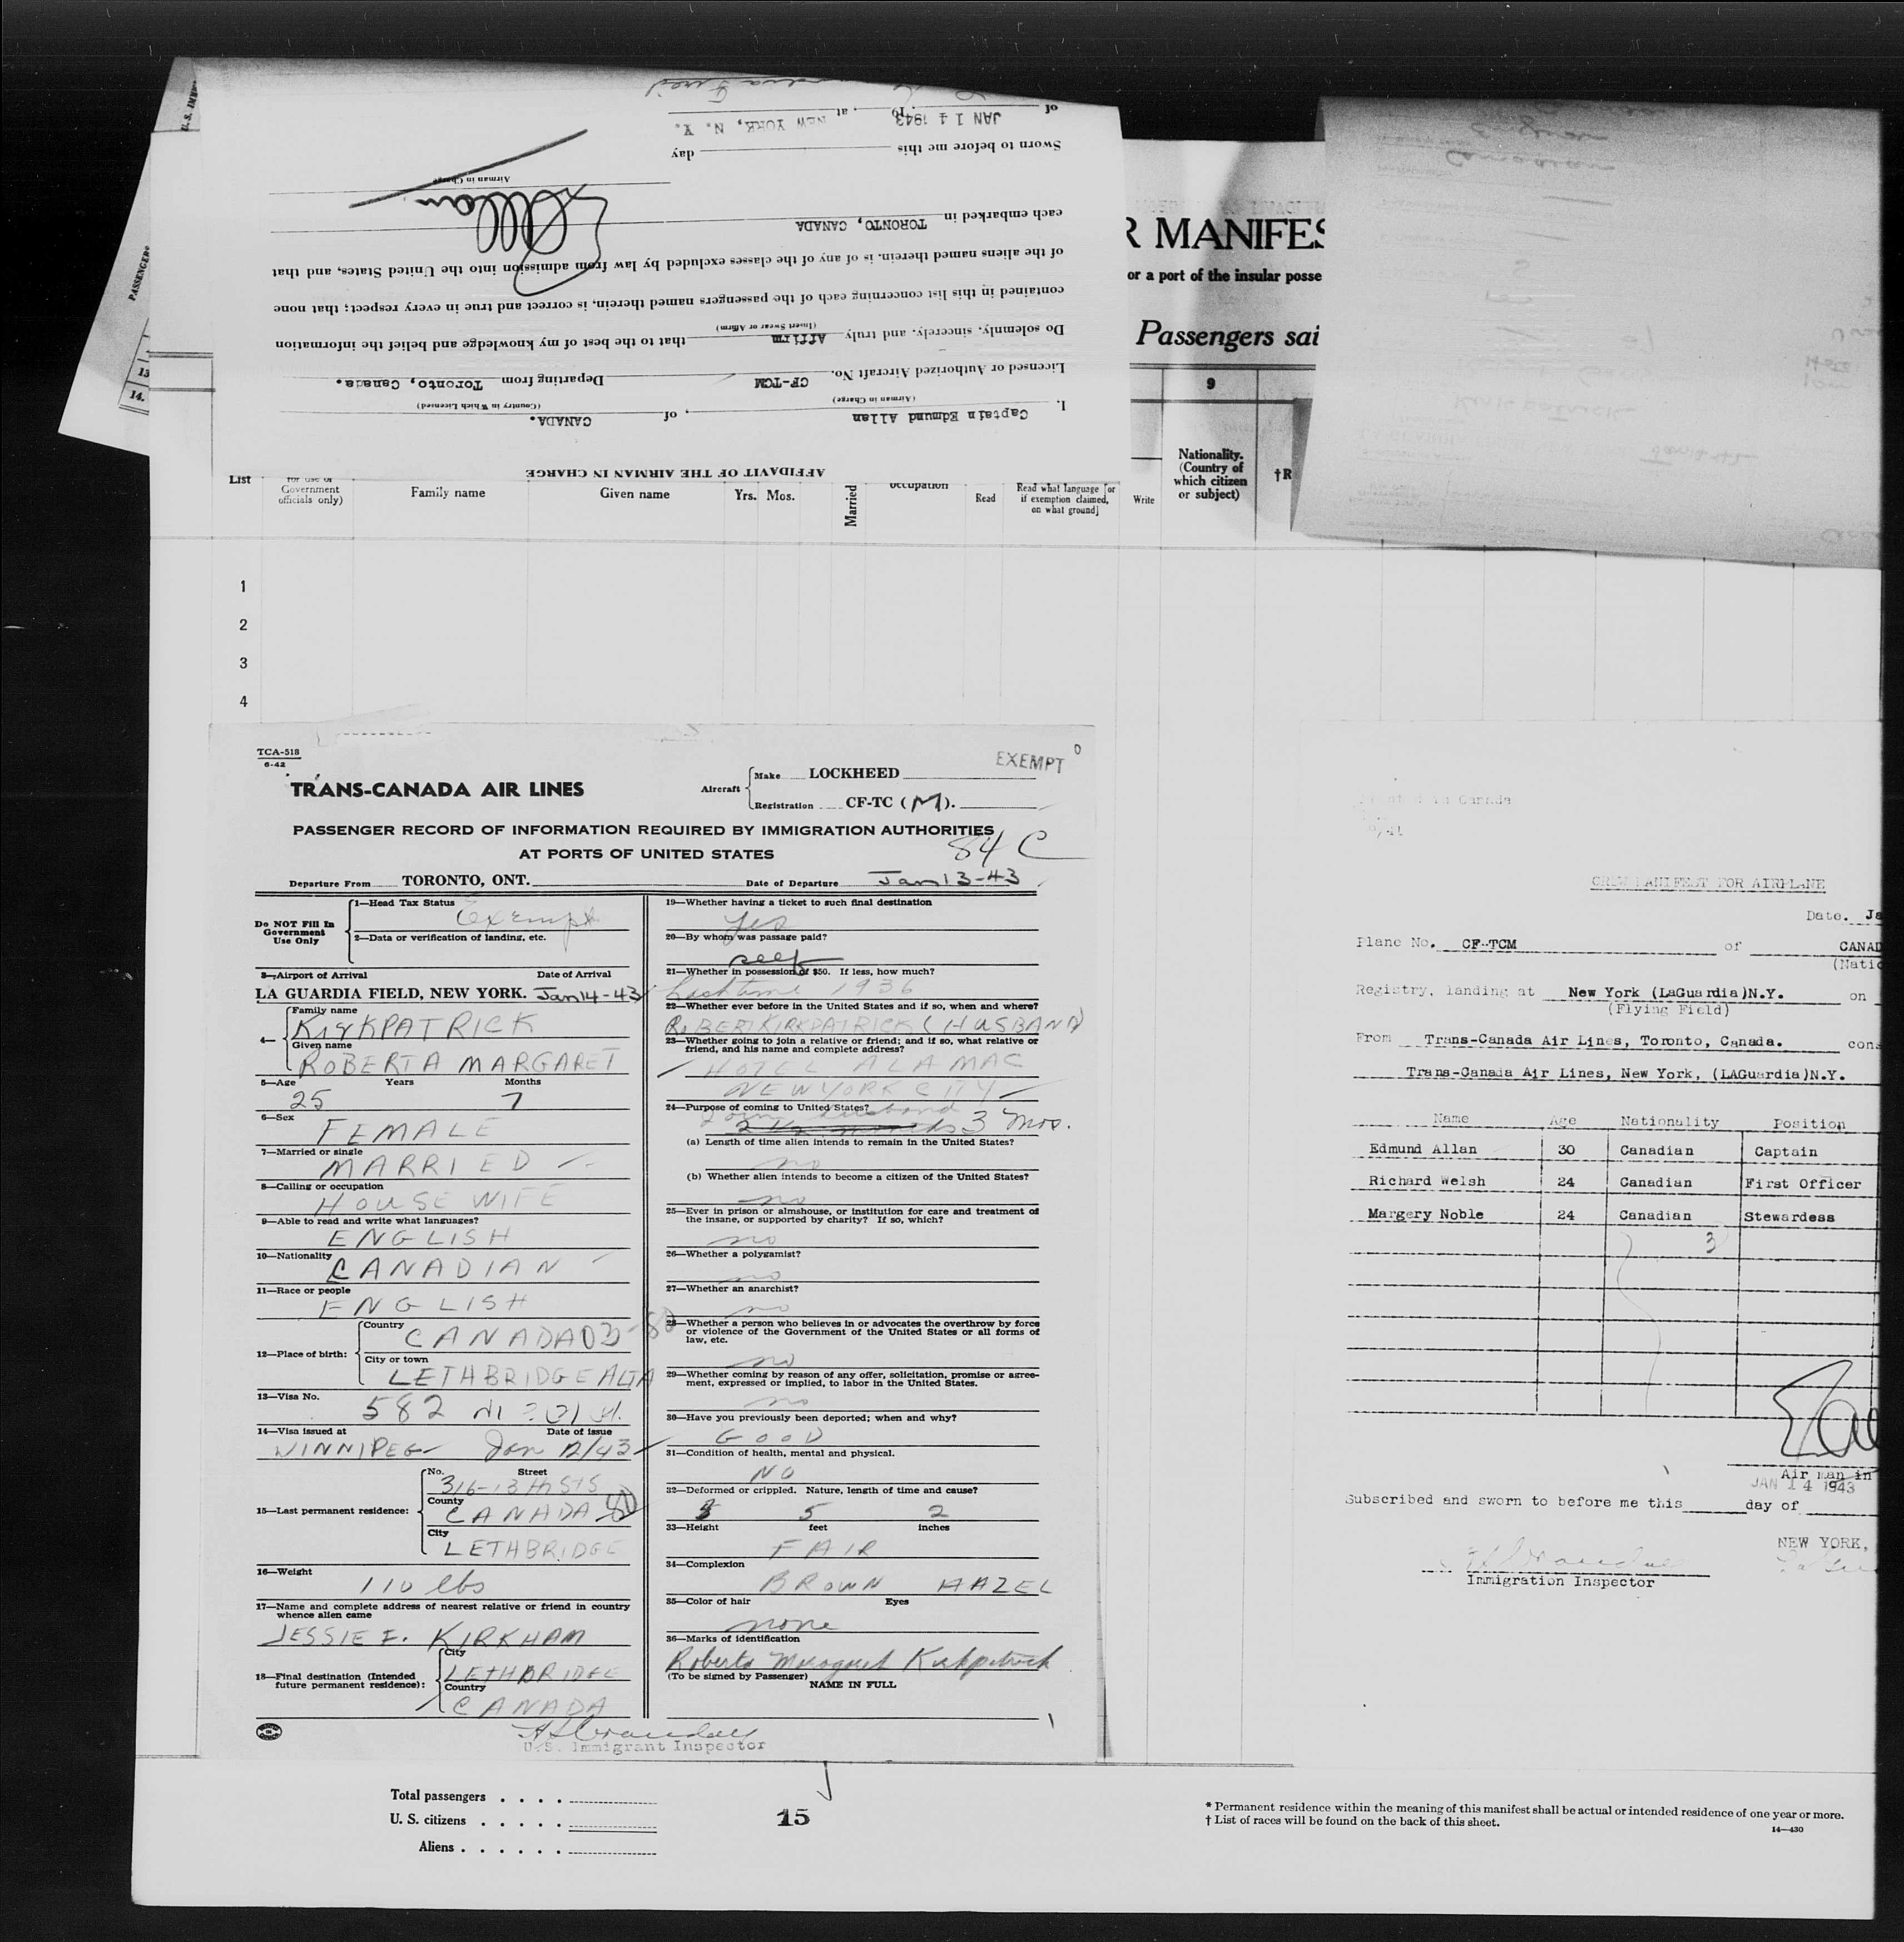 U.S. IMM
PASSENGERS
13
14.
JAN 14 1943, at NEW YORK, N. Y.
Sworn to before me this day
of , 19
Airman in Charge
each embarked in TORONTO, CANADA
of the aliens named therein. is of any of the classes excluded by law from admission into the United States, and that
contained in this list concerning each of the passengers named therein, is correct and true in every respect; that none
(Insert Swear or Affirm)
Do solemnly, sincerely, and truly Affirm that to the best of my knowledge and belief the information
Licensed or Authorized Aircraft No. CF-TCM Departing from Toronto, Canada.
(Airman in Charge) (Country in Which Licensed)
I. Captain Edmund Allan , of CANADA.
AFFIDAVIT OF THE AIRMAN IN CHARGE
R MANIFES
or a port of the insular posse
Passengers sai
9
Nationality.
(Country of
which citizen
or subject)
†R
List
for use of
Government
officials only)
Family name
Given name
Yrs. Mos.
Married
occupation
Read
Read what language [or
if exemption claimed,
on what ground]
Write
1
2
3
4
TCA-518
6-42
EXEMPT
TRANS-CANADA AIR LINES
Aircraft
Make LOCKHEED
Registration CF-TC (M).
PASSENGER RECORD OF INFORMATION REQUIRED BY IMMIGRATION AUTHORITIES
AT PORTS OF UNITED STATES
84 C
Departure From TORONTO, ONT.
Date of Departure Jan 13-43
Do NOT Fill In
Government
Use Only
1—Head Tax Status
Exempt
2—Data or verification of landing, etc.
3—Airport of Arrival Date of Arrival
LA GUARDIA FIELD, NEW YORK. Jan 14-43
4—
Family name
KIRKPATRICK
Given name
ROBERTA MARGARET
5—Age Years Months
25 7
6—Sex
FEMALE
7—Married or single
MARRIED
8—Calling or occupation
HOUSE WIFE
9—Able to read and write what languages?
ENGLISH
10—Nationality
CANADIAN
11—Race or people
ENGLISH
12—Place of birth:
Country
CANADA 03-80
City or town
LETHBRIDGE ALTA
13—Visa No.
582
14—Visa issued at Date of issue
WINNIPEG Jan 12/43
15—Last permanent residence:
No. Street
316-13th ST S
County
CANADA 80
City
LETHBRIDGE
16—Weight
110 lbs
17—Name and complete address of nearest relative or friend in country
whence alien came
JESSIE E. KIRKHAM
18—Final destination (Intended
future permanent residence):
City
LETHBRIDGE
Country
CANADA
19—Whether having a ticket to such final destination
yes
20—By whom was passage paid?
self
21—Whether in possession of $50. If less, how much?
Last time 1936
22—Whether ever before in the United States and if so, when and where?
ROBERT KIRKPATRICK (HUSBAND)
23—Whether going to join a relative or friend; and if so, what relative or
friend, and his name and complete address?
HOTEL ALAMAC
NEW YORK CITY
24—Purpose of coming to United States?
Join husband
2 1/2 months 3 mos.
(a) Length of time alien intends to remain in the United States?
no
(b) Whether alien intends to become a citizen of the United States?
no
25—Ever in prison or almshouse, or institution for care and treatment of
the insane, or supported by charity? If so, which?
no
26—Whether a polygamist?
no
27—Whether an anarchist?
no
28—Whether a person who believes in or advocates the overthrow by force
or violence of the Government of the United States or all forms of
law, etc.
no
29—Whether coming by reason of any offer, solicitation, promise or agree-
ment, expressed or implied, to labor in the United States.
no
30—Have you previously been deported; when and why?
GOOD
31—Condition of health, mental and physical.
NO
32—Deformed or crippled. Nature, length of time and cause?
5 2
33—Height feet inches
FAIR
34—Complexion
BROWN HAZEL
35—Color of hair Eyes
none
36—Marks of identification
Roberta Margaret Kirkpatrick
(To be signed by Passenger)
NAME IN FULL
U.S. Immigrant Inspector
Total passengers
U. S. citizens
Aliens
15
* Permanent residence within the meaning of this manifest shall be actual or intended residence of one year or more.
† List of races will be found on the back of this sheet.
14—430
Printed in Canada
CREW MANIFEST FOR AIRPLANE
Date. Ja
Plane No. CF-TCM of CANAD
(Natio
Registry, landing at New York (LaGuardia)N.Y. on
(Flying Field)
From Trans-Canada Air Lines, Toronto, Canada. cons
Trans-Canada Air Lines, New York, (LAGuardia)N.Y.
Name Age Nationality Position
Edmund Allan 30 Canadian Captain
Richard Welsh 24 Canadian First Officer
Margery Noble 24 Canadian Stewardess
3
Air man in
JAN 14 1943
Subscribed and sworn to before me this day of
NEW YORK,
Immigration Inspector